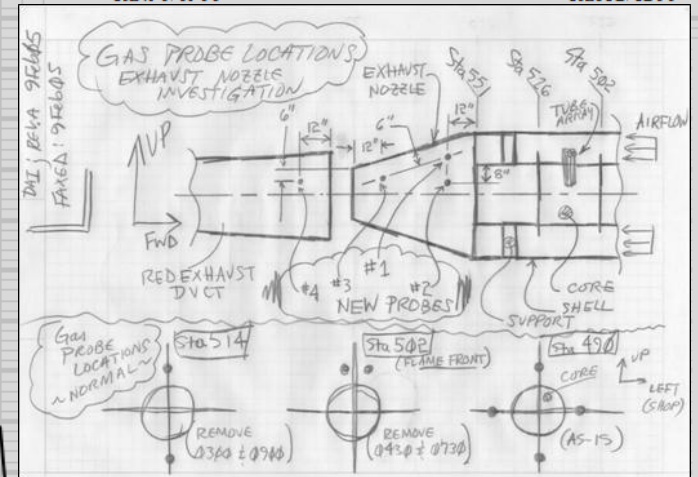 DAI; RELA 9FEBØ5
FAXED: 9FEBØ5
GAS PROBE LOCATIONS
EXHAUST NOZZLE
INVESTIGATION
EXHAUST
NOZZLE
Sta 551
Sta 526
Sta 502
TUBE
ARRAY
AIRFLOW
6"
12"
12"
6"
12"
8"
UP
FWD
RED EXHAUST
DUCT
#4
#3
#1
#2
NEW PROBES
CORE
SHELL
SUPPORT
Gas
PROBE
LOCATIONS
~NORMAL~
Sta 514
REMOVE
Ø3ØØ & Ø9ØØ
Sta 502
(FLAME FRONT)
REMOVE
Ø43Ø & Ø73Ø
Sta 490
CORE
UP
LEFT
(SHOP)
(AS-IS)